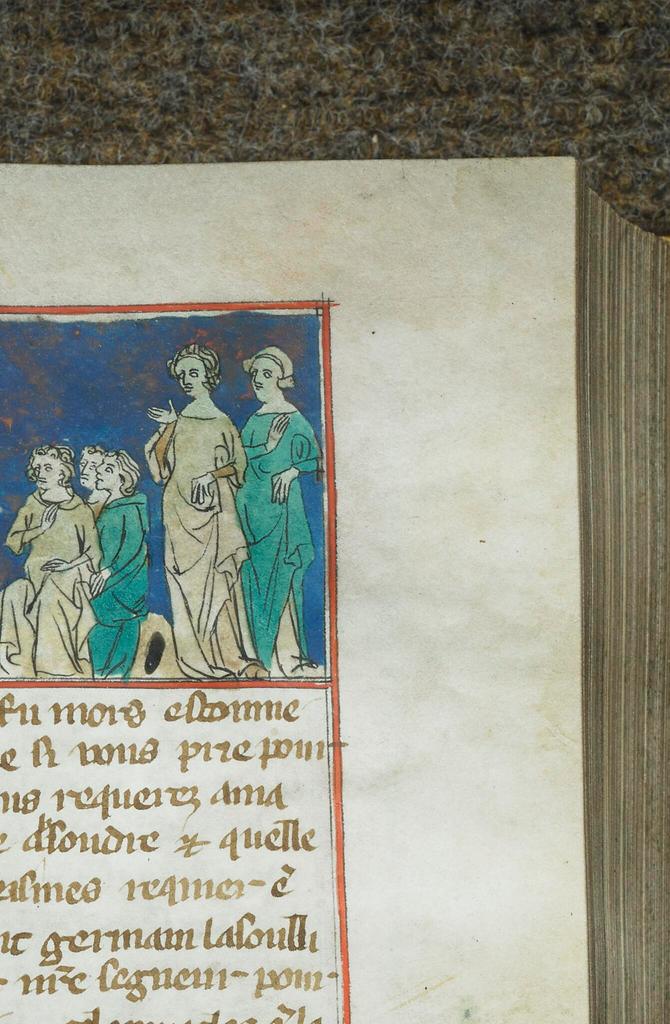 fu mors escomme
e si vous prie pour
us requerez a ma
e assoudre & quelle
asmes requier
nt germain lasoulli
nre segneur pour